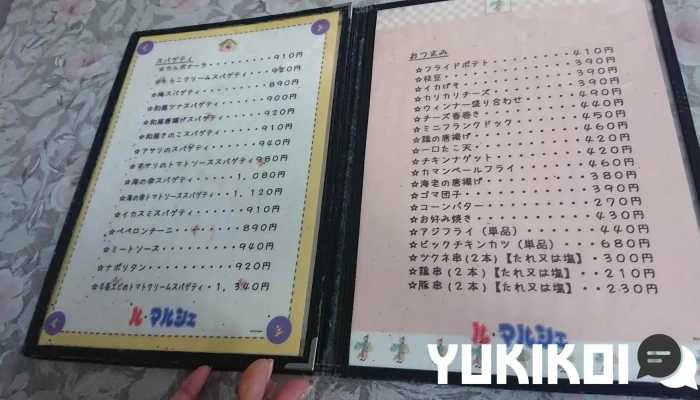 スパゲティ
☆カルボナーラ・・・・・・・・・910円
☆たらこクリームスパゲティ・・・
☆梅スパゲティ・・・・・・・・・890円
☆和風ツナスパゲティ・・・・・・900円
☆和風唐揚げスパゲティ・・・・・920円
☆和風きのこスパゲティ・・・・・910円
☆アサリのスパゲティ・・・・・・940円
☆アサリのトマトソーススパゲティ・980円
☆海の幸スパゲティ・・・・・1,080円
☆海の幸トマトソーススパゲティ・・1,120円
☆イカスミスパゲティ・・・・・・910円
☆ペペロンチーニ・・・・・・・・890円
☆ミートソース・・・・・・・・・940円
☆ナポリタン・・・・・・・・・・920円
☆手長エビのトマトクリームスパゲティ・・1,340円
ル・マルシェ
おつまみ
☆フライドポテト・・・・・・・・410円
☆枝豆・・・・・・・・・・・・・390円
☆イカげそ・・・・・・・・・・・390円
☆カリカリチーズ・・・・・・・・390円
☆ウィンナー盛り合わせ・・・・・490円
☆チーズ春巻き・・・・・・・・・440円
☆ミニフランクドック・・・・・・450円
☆鶏の唐揚げ・・・・・・・・・・460円
☆一口たこ天・・・・・・・・・・420円
☆チキンナゲット・・・・・・・・420円
☆カマンベールフライ・・・・・・460円
☆海老の唐揚げ・・・・・・・・・380円
☆ゴマ団子・・・・・・・・・・・390円
☆コーンバター・・・・・・・・・270円
☆お好み焼き・・・・・・・・・・430円
☆アジフライ（単品）・・・・・・440円
☆ビックチキンカツ（単品）・・・680円
☆ツクネ串(2本)【たれ又は塩】・300円
☆鶏串(2本)【たれ又は塩】・・210円
☆豚串(2本)【たれ又は塩】・・230円
ル・マルシェ
YUKIKOI